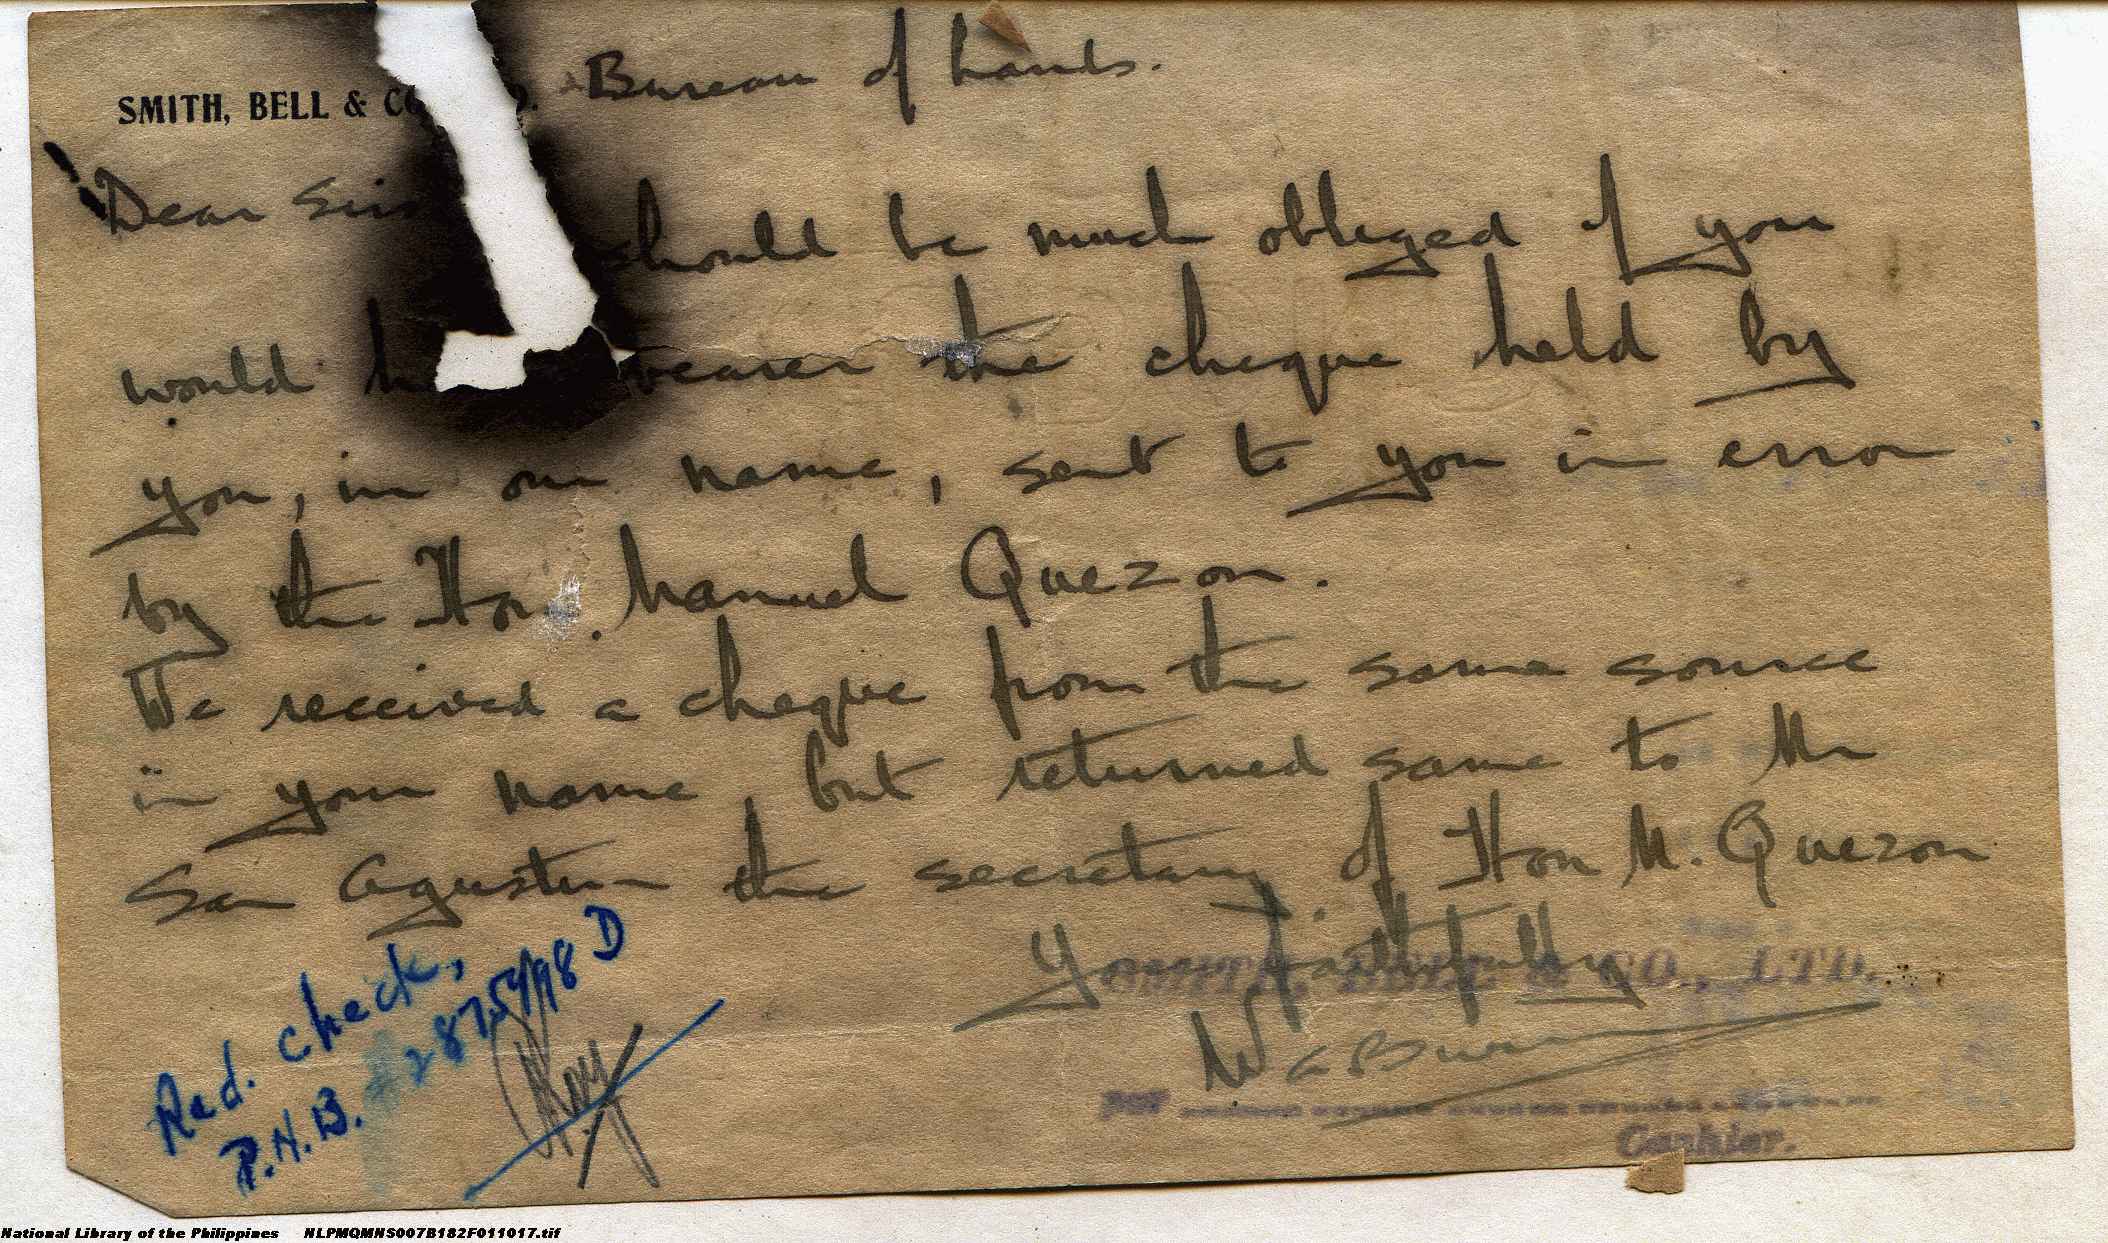 SMITH, BELL & CO D.
Bureau of Lands.
Dear Sirs
should be much obliged if you
would h bearer the cheque held by
you, in our name, sent to you in error
by the Hon. Manuel Quezon.
We received a cheque from the same source
in your name, but returned same to Mr
San Agustin the secretary of Hon M. Quezon
Yours faithfully
SMITH, BELL & CO., LTD.
per
Cashier.
Red. check,
P.N.B. #
National Library of the Philippines NLPMQMNS007B182F011017.tif